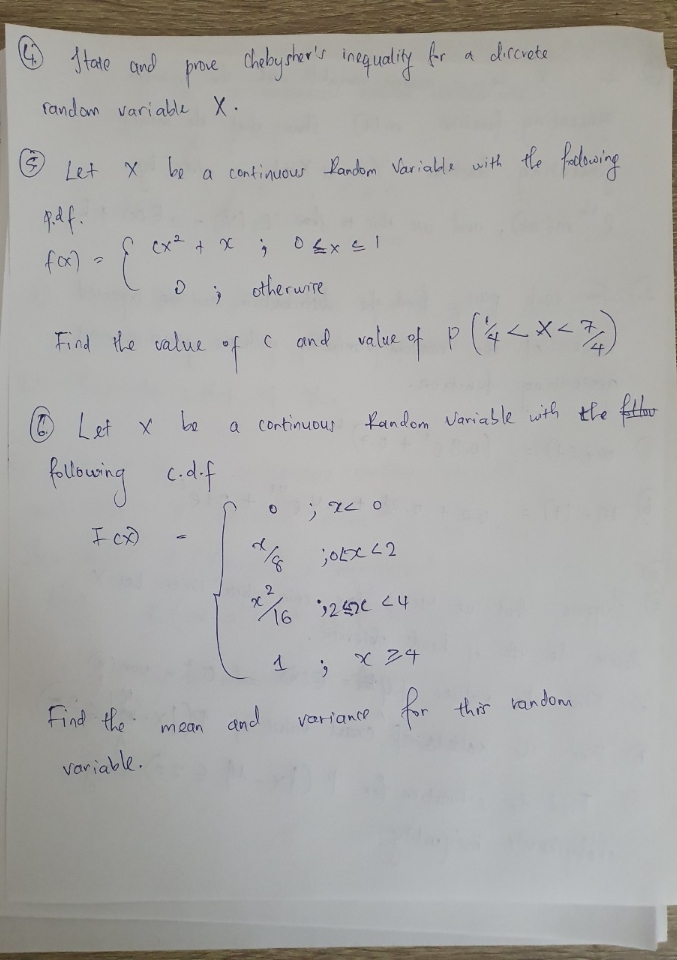 ④ State and prove Chebysher's inequality for a discrete
random variable X.
⑤ Let X be a continuous Random Variable with the following
p.d.f.
f(x) = { cx² + x ; 0 ≤ x ≤ 1
0 ; otherwise
Find the value of c and value of P (1/4 < X < 7/4)
⑥ Let X be a continuous Random Variable with the
following c.d.f
F(x) = { 0 ; x < 0
x/8 ; 0≤x < 2
x²/16 ; 2≤x < 4
1 ; x ≥ 4
Find the mean and variance for this random
variable.